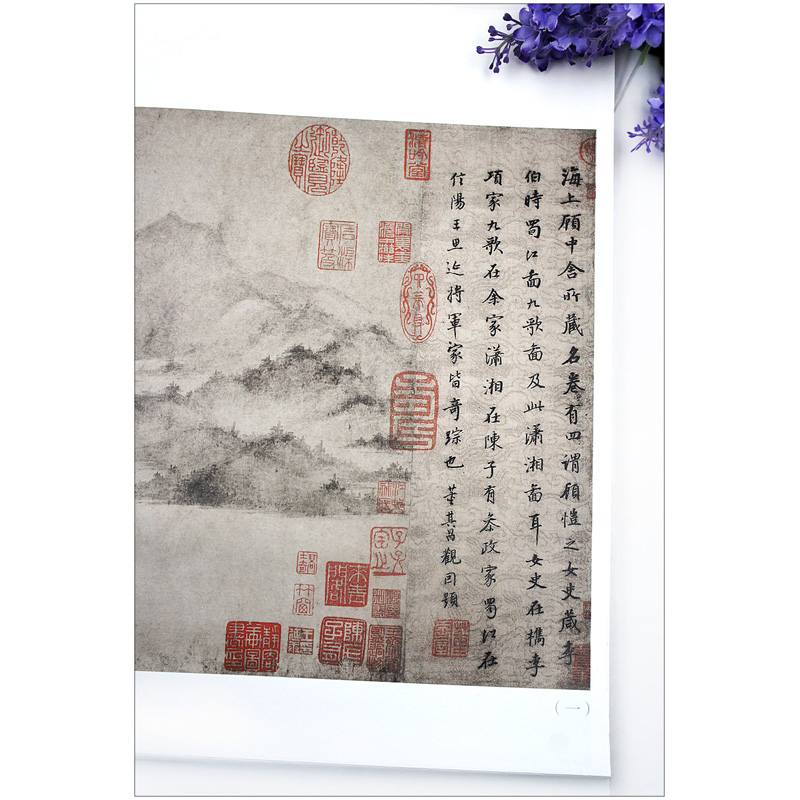 海上顧中舍所藏名卷有四謂顧愷之女史箴李
伯時蜀江圖九歌圖及此瀟湘圖耳女史在檇李
項家九歌在余家瀟湘在陳子有參政家蜀江在
信陽王思延將軍家皆奇踪也 董其昌觀因題
乾隆御覽之寶
石渠寶笈
(一)